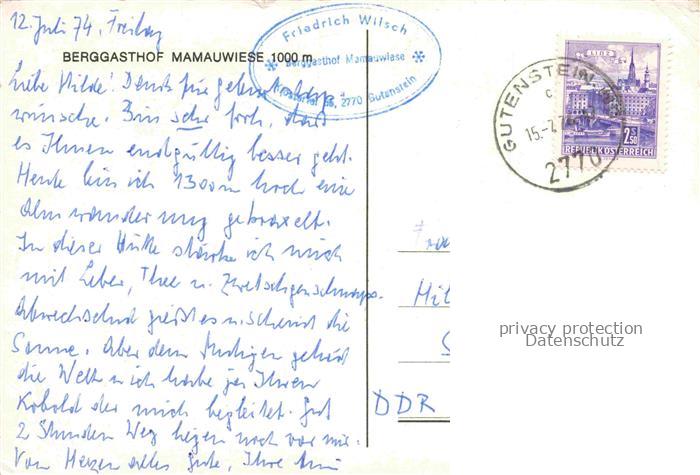 12. Juli 74, Freitag
BERGGASTHOF MAMAUWIESE 1000 m
Friedrich Wilsch
Berggasthof Mamauwiese
2770 Gutenstein
Liebe Hilde! Dank für
wünsche. Bin sehr froh, dass
es Ihnen endgültig besser geht.
Heute bin ich 1300 m hoch eine
Almwanderung gekraxelt.
In dieser Hütte stärke ich mich
mit Leber, Thee u. Zwetschgenschnaps.
Abwechselnd gießt es u. scheint die
Sonne. Aber dem Mutigen gehört
die Welt u. ich habe ja Ihren
Kobold der mich begleitet. Gut
2 Stunden Weg liegen noch vor mir.
Von Herzen alles Gute, Ihre
LINZ
2 S 50
REPUBLIK ÖSTERREICH
GUTENSTEIN, NÖ
c
15.-7.74
2770
Fra
Hil
DDR
privacy protection
Datenschutz